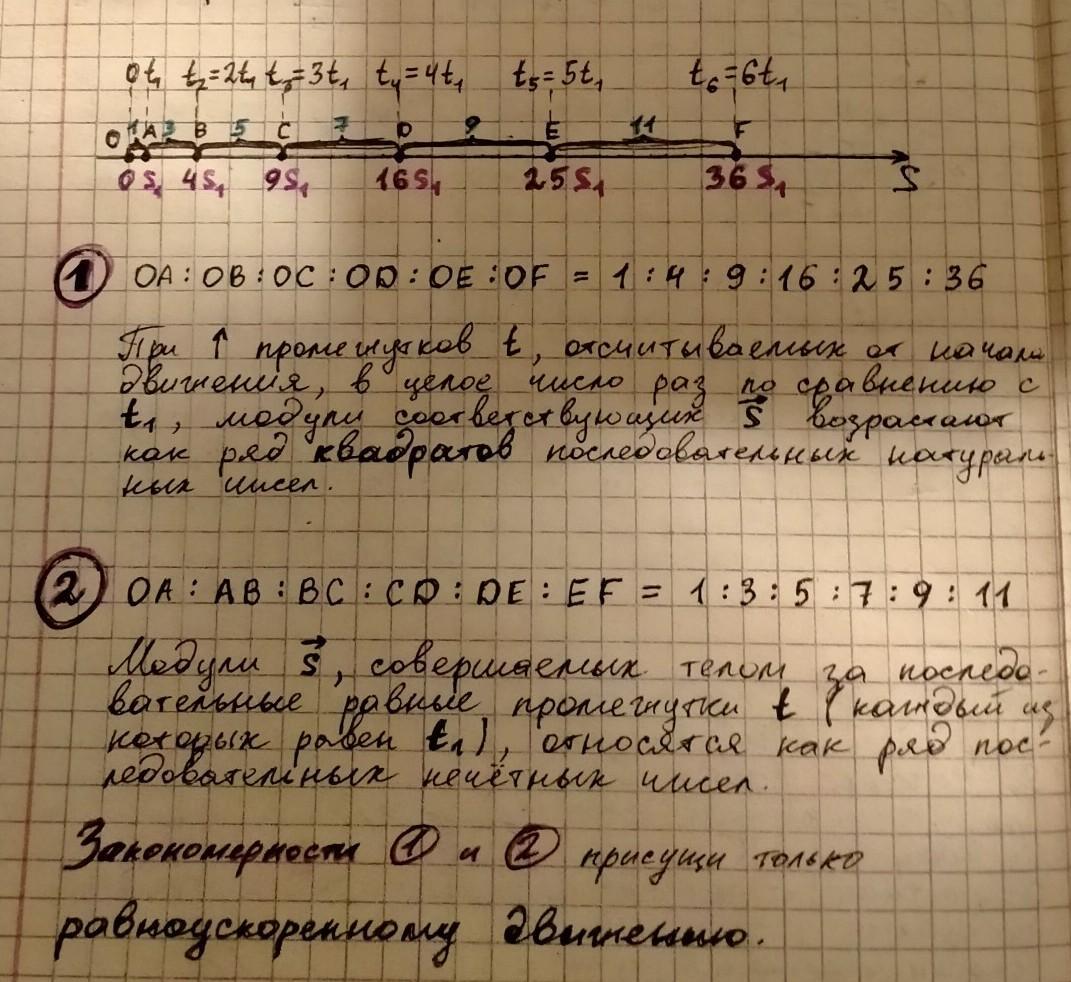 0 t₁ t₂=2t₁ t₃=3t₁ t₄=4t₁ t₅=5t₁ t₆=6t₁
O 1 A 3 B 5 C 7 D 9 E 11 F
0 S₁ 4S₁ 9S₁ 16S₁ 25S₁ 36S₁ S
1 OA : OB : OC : OD : OE : OF = 1 : 4 : 9 : 16 : 25 : 36
При ↑ промежутков t, отсчитываемых от начала
движения, в целое число раз по сравнению с
t₁, модули соответствующих s⃗ возрастают
как ряд квадратов последовательных натураль-
ных чисел.
2 OA : AB : BC : CD : DE : EF = 1 : 3 : 5 : 7 : 9 : 11
Модули s⃗, совершаемых телом за последо-
вательные равные промежутки t (каждый из
которых равен t₁), относятся как ряд пос-
ледовательных нечётных чисел.
Закономерности 1 и 2 присущи только
равноускоренному движению.